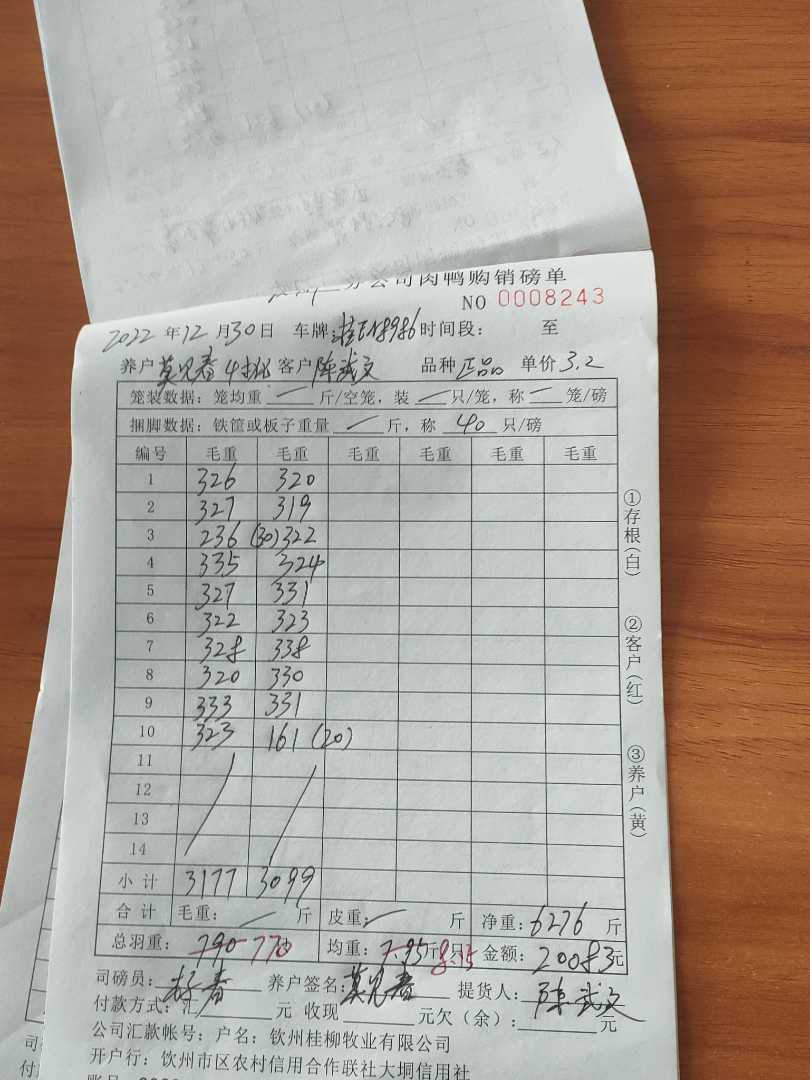 分公司肉鸭购销磅单
NO 0008243
2022 年 12 月 30 日 车牌: 8986 时间段: 至
养户 莫兄春 客户 陈武文 品种 正品 单价 3.2
笼装数据: 笼均重 — 斤/空笼, 装 — 只/笼, 称 — 笼/磅
捆脚数据: 铁筐或板子重量 — 斤, 称 40 只/磅
编号 毛重 毛重 毛重 毛重 毛重 毛重
1 326 320
2 327 319
3 236 (30) 322
4 335 324
5 327 331
6 322 323
7 328 338
8 320 330
9 333 331
10 323 161 (20)
11
12
13
14
小计 3177 3099
合计 毛重: — 斤 皮重: — 斤 净重: 6276 斤
总羽重: 790 770 均重: 7.95 斤/只 8.15 金额: 20083 元
司磅员: 养户签名: 莫兄春 提货人: 陈武文
付款方式: 汇 元 收现 元欠(余): 元
公司汇款帐号: 户名: 钦州桂柳牧业有限公司
开户行: 钦州市区农村信用合作联社大垌信用社
①存根(白)
②客户(红)
③养户(黄)